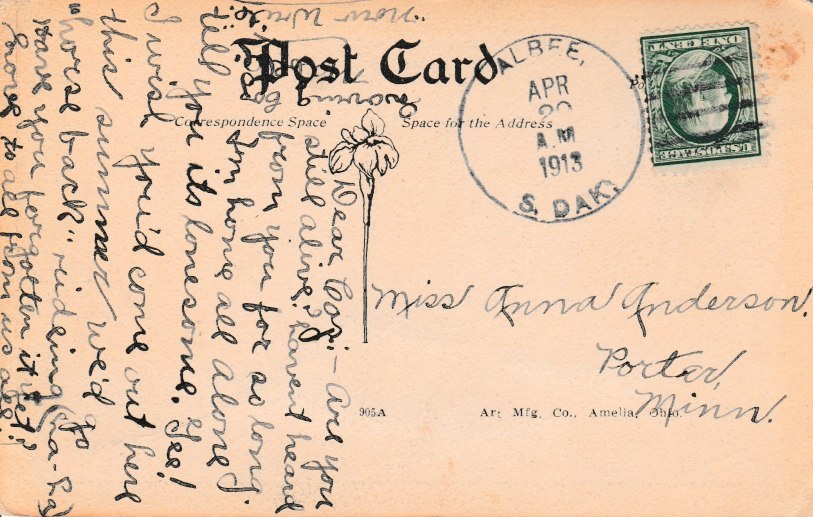 Post Card
Correspondence Space
Space for the Address
ALBEE,
APR
A.M
1913
S. DAK.
ONE CENT
U.S. POSTAGE
Dear Coz:- Are you
still alive? I havent heard
from you for so long.
I'm home all alone
till you its lonesome. Gee!
I wish you'd come out here
this summer we'd go
"horse back" riding (Ha-Ha)
Have you forgotten it yet?
Love to all from us all.
"now write"
Miss Anna Anderson.
Porter,
Minn.
905A
Art Mfg. Co., Amelia, Ohio.